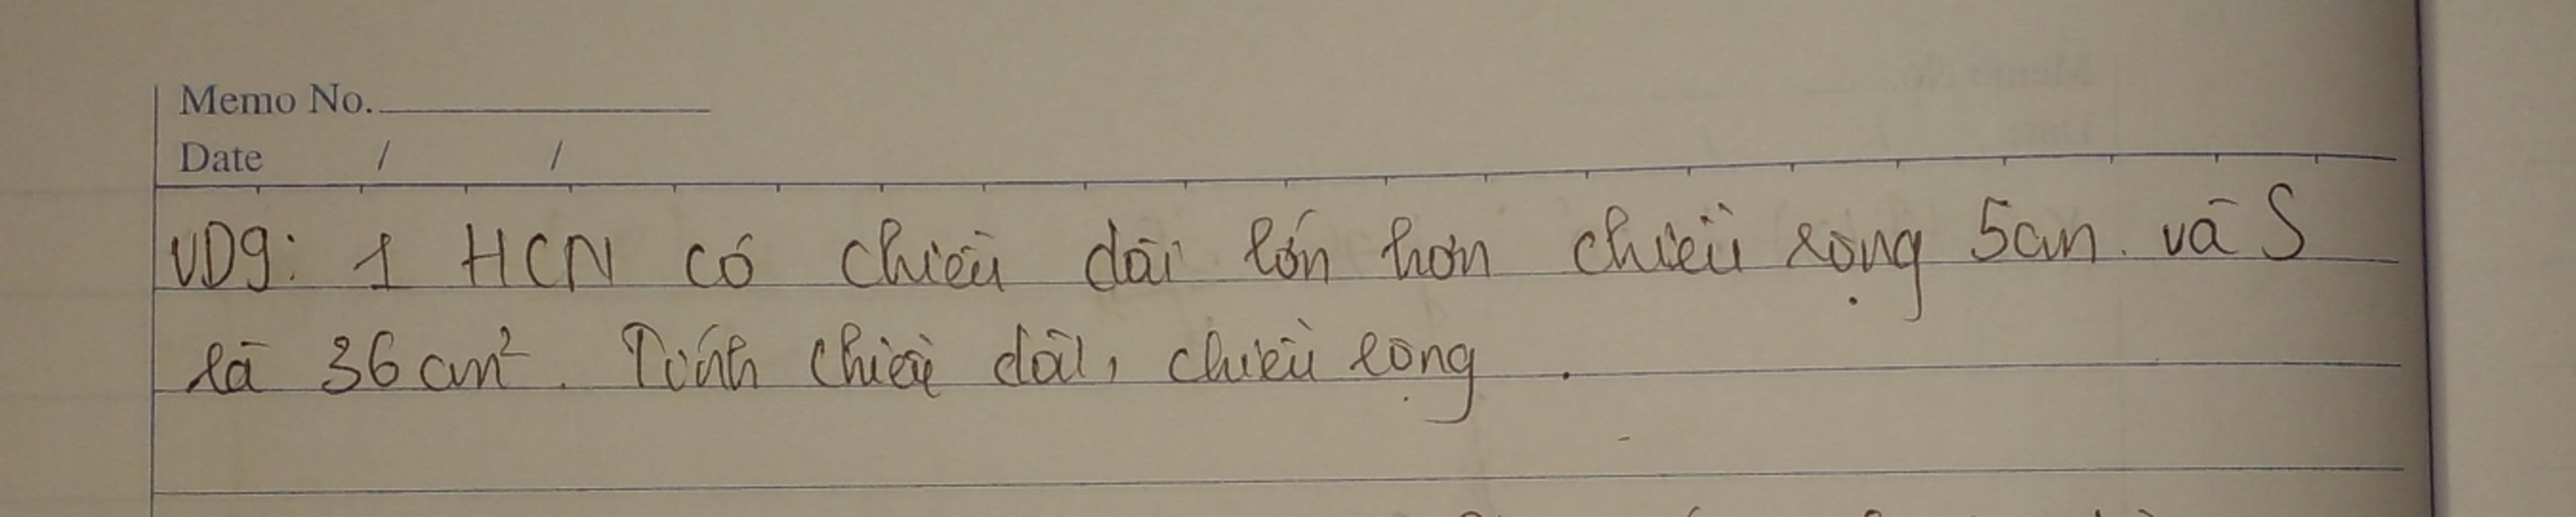 Memo No.
Date / /
VD9: 1 HCN có chiều dài lớn hơn chiều rộng 5cm. và S
là 36 cm². Tính chiều dài, chiều rộng.